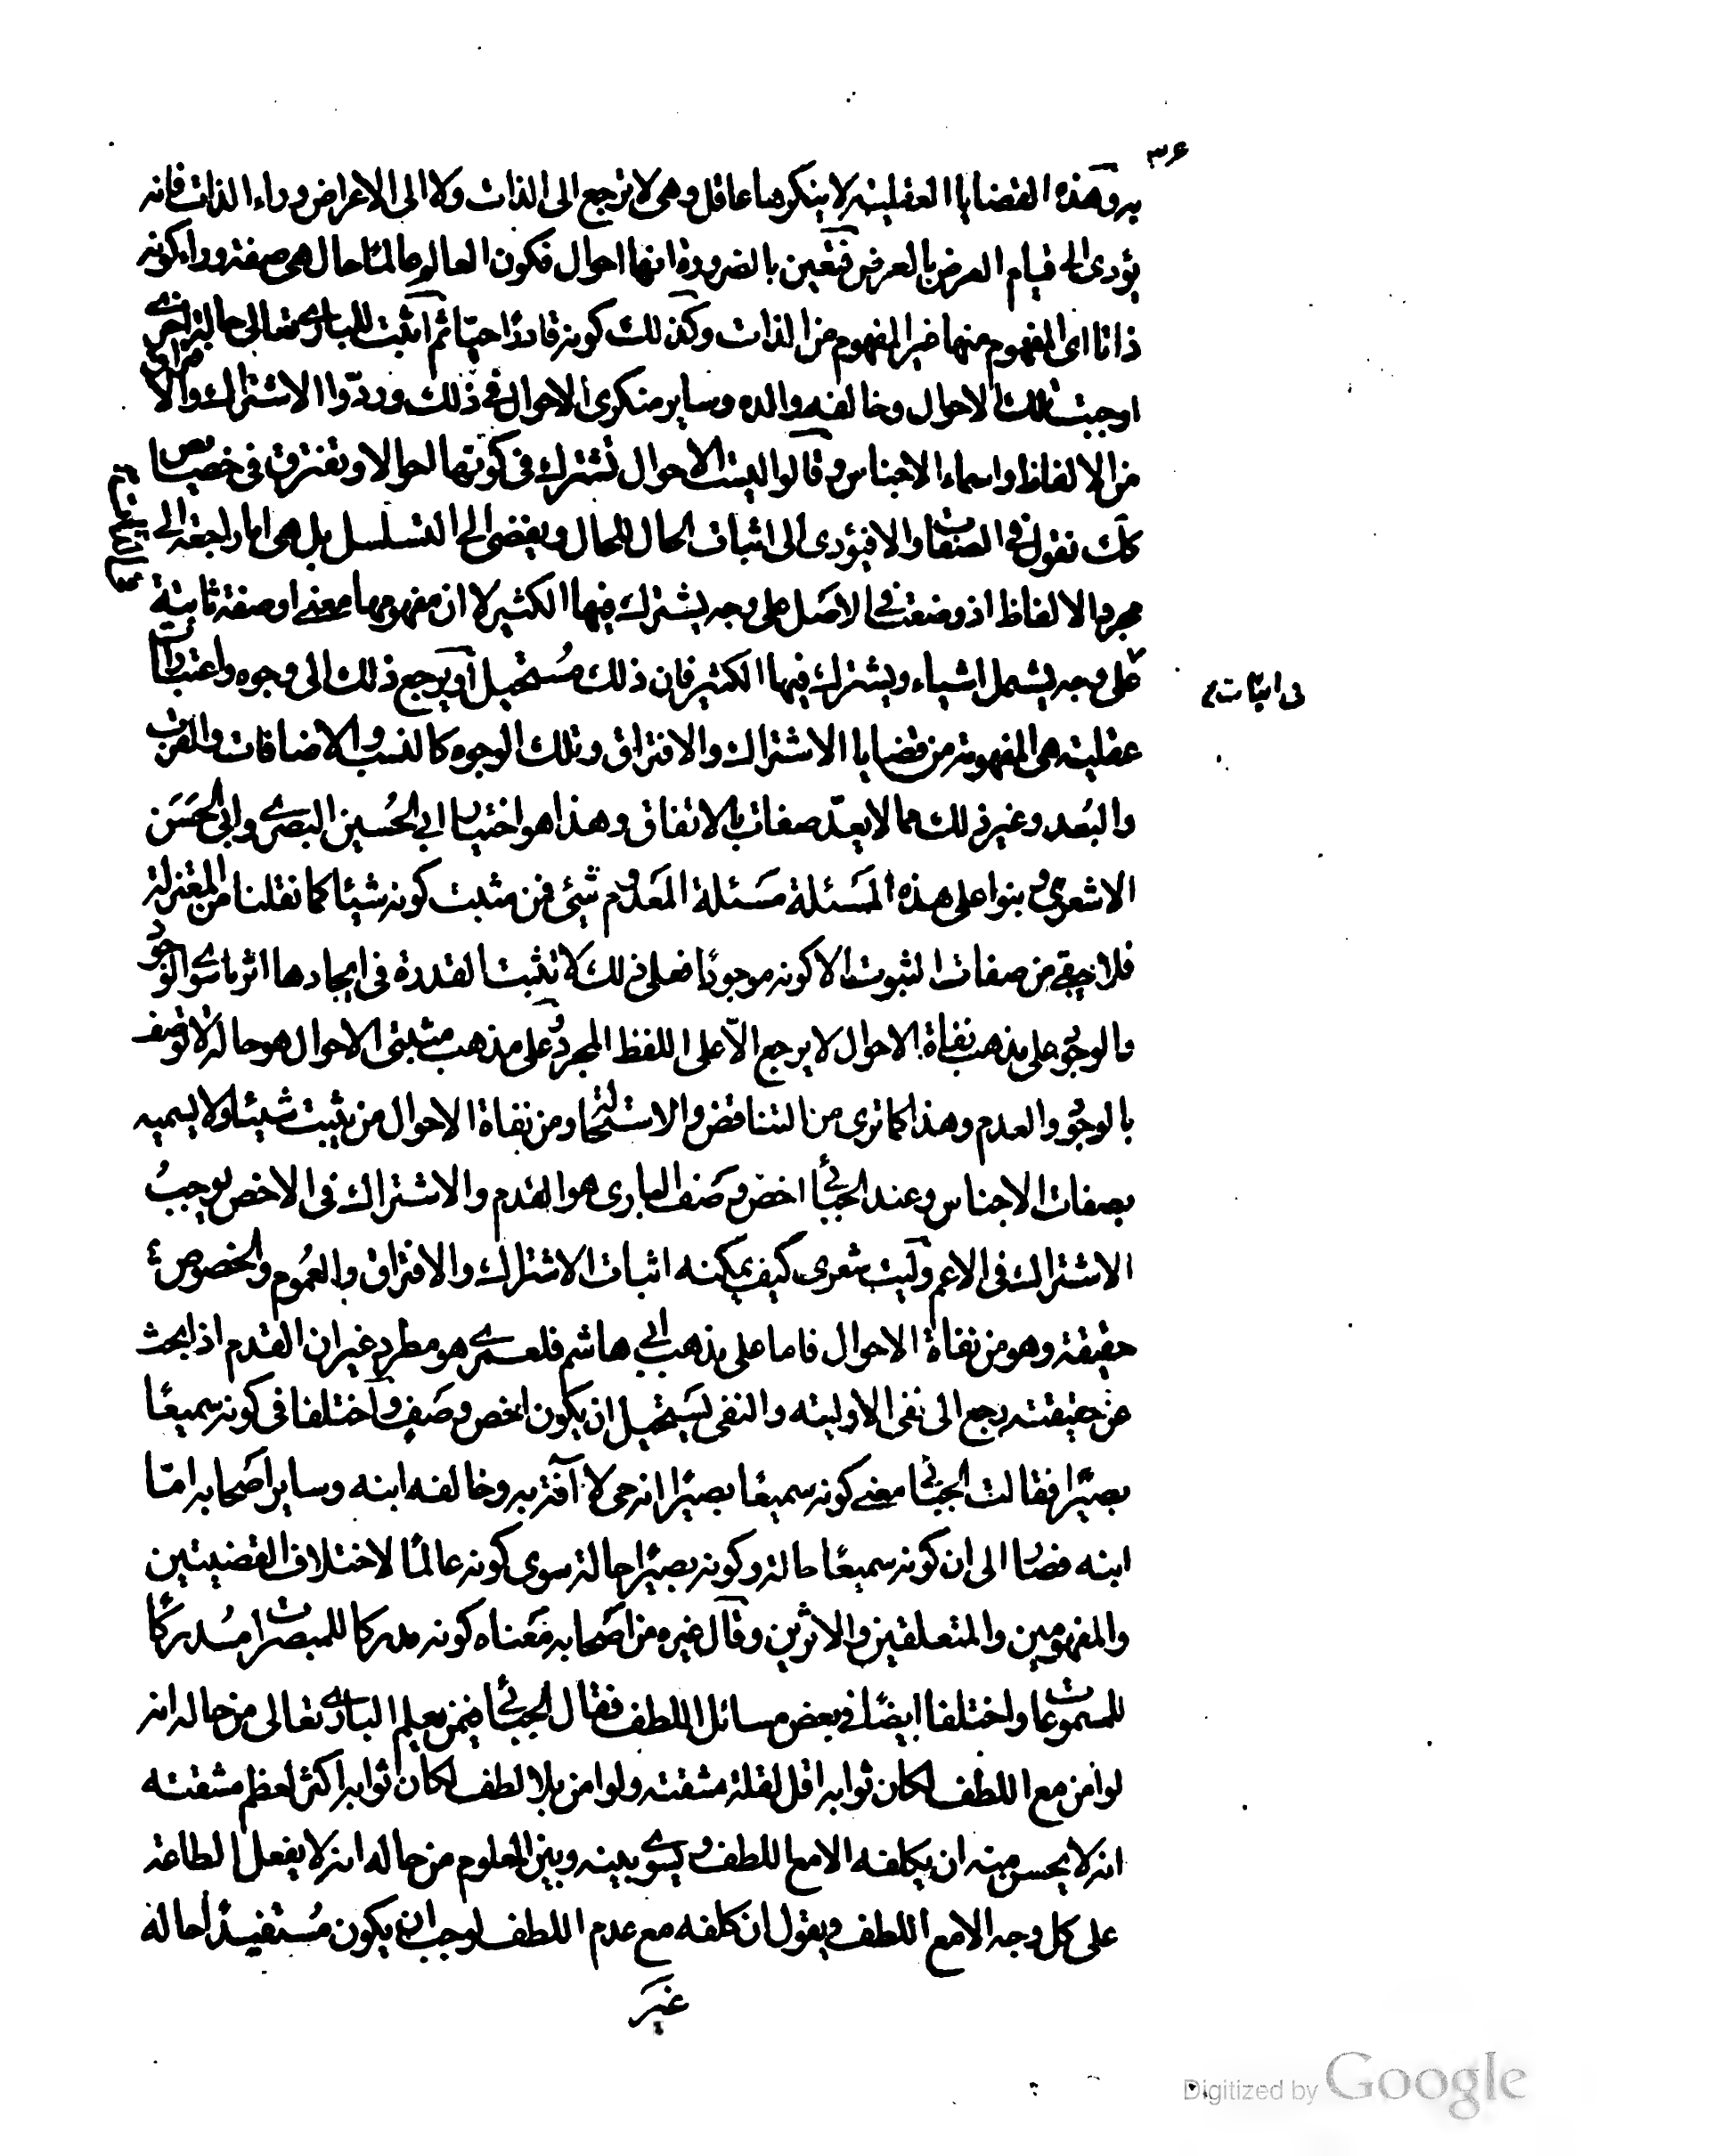 ٣۴
به وهذه القضايا العقلية لا ينكرها عاقل وهى لا ترجع الى الذات ولا الى الاعراض وراء الذات فانه
يؤدى الى قيام العرض بالعرض فتعين بالضرورة انها احوال فكون العالم عالما حال هى صفة وراء كونه
ذاتا اى المفهوم منها غير المفهوم من الذات وكذلك كونه قادرًا حيّا ثم اثبت للبارى تعالى حالة اخرى
اوجبت تلك الاحوال وخالفه والده وساير منكرى الاحوال فى ذلك وردّوا الاشتراك والافتراق
من الالفاظ واسماء الاجناس وقالوا اليست الاحوال تشترك فى كونها احوالا وتفترق فى خصايص
كك نقول فى الصفات والا فيؤدى الى اثبات الحال للحال ويفضى الى التسلسل بل هى اما راجعة الى
مجرد الالفاظ اذ وضعت فى الاصل على وجه يشترك فيها الكثير لا ان مفهومها معنى او صفة ثابتة
على وجه يشمل اشياء ويشترك فيها الكثير فان ذلك مُستحيل او يرجع ذلك الى وجوه واعتبارات
فى اثبات
عقلية هى المفهومة من قضايا الاشتراك والافتراق وتلك الوجوه كالنسب والاضافات والقرب
والبُعد وغير ذلك مما لا يعدّ صفات بالاتفاق وهذا هو اختيار ابى الحُسين البصرى وابى الحَسَن
الاشعرى وبنوا على هذه المَسئلة مَسئلة المَعدوم شيئ فمن مثبت كونه شيئا كما نقلنا من المعتزلة
فلا يبقى من صفات الثبوت الا كونه موجودًا فعلى ذلك لا تثبت القدرة فى ايجادها اثر ما سوى الوجود
والوجود على مذهب نفاة الاحوال لا يرجع الّا على اللفظ المجرد وعلى مذهب مثبتى الاحوال هو حالة لا توصف
بالوجود والعدم وهذا كما ترى من التناقض والاستحالة ومن نفاة الاحوال من يثبت شيئا ولا يسميه
بصفات الاجناس وعند الجبائى اخص وصف البارى هو القدم والاشتراك فى الاخص يوجبُ
الاشتراك فى الاعم وليت شعرى كيف يمكنه اثبات الاشتراك والافتراق والعمُوم والخصوص
حقيقة وهو من نفاة الاحوال فاما على مذهب ابى هاشم فلعمرى هو مطرد غير ان القدم اذا بحث
عن حقيقته رجع الى نفى الاولية والنفى يستحيل ان يكون اخص وصف واختلفا فى كونه سميعًا
بصيرًا فقالت الجبائى معنى كونه سميعًا بصيرًا انه حى لا آفة به وخالفه ابنه وساير اصحابه امّا
ابنه فصار الى ان كونه سميعًا حالة وكونه بصيرًا حالة سوى كونه عالمًا لاختلاف القضيتين
والمفهومين والمتعلقين والاثرين وقال غيره من اصحابه مَعناه كونه مدركا للمبصرات مُدركًا
للمسموعات واختلفا ايضًا فى بعض مسائل اللطف فقال الجبائى فيمن يعلم البارى تعالى من حاله انه
لو امن مع اللطف لكان ثوابه اقل لقلة مشقته ولو امن بلا لطف لكان ثوابه اكثر لعظم مشقته
انه لا يحسن منه ان يكلفه الا مع اللطف ويسوى بينه وبين المعلوم من حاله انه لا يفعل الطاعة
على كل وجه الا مع اللطف ويقول ان كلفه مع عدم اللطف لوجب ان يكون مُستفسدًا حاله
غير
Digitized by Google